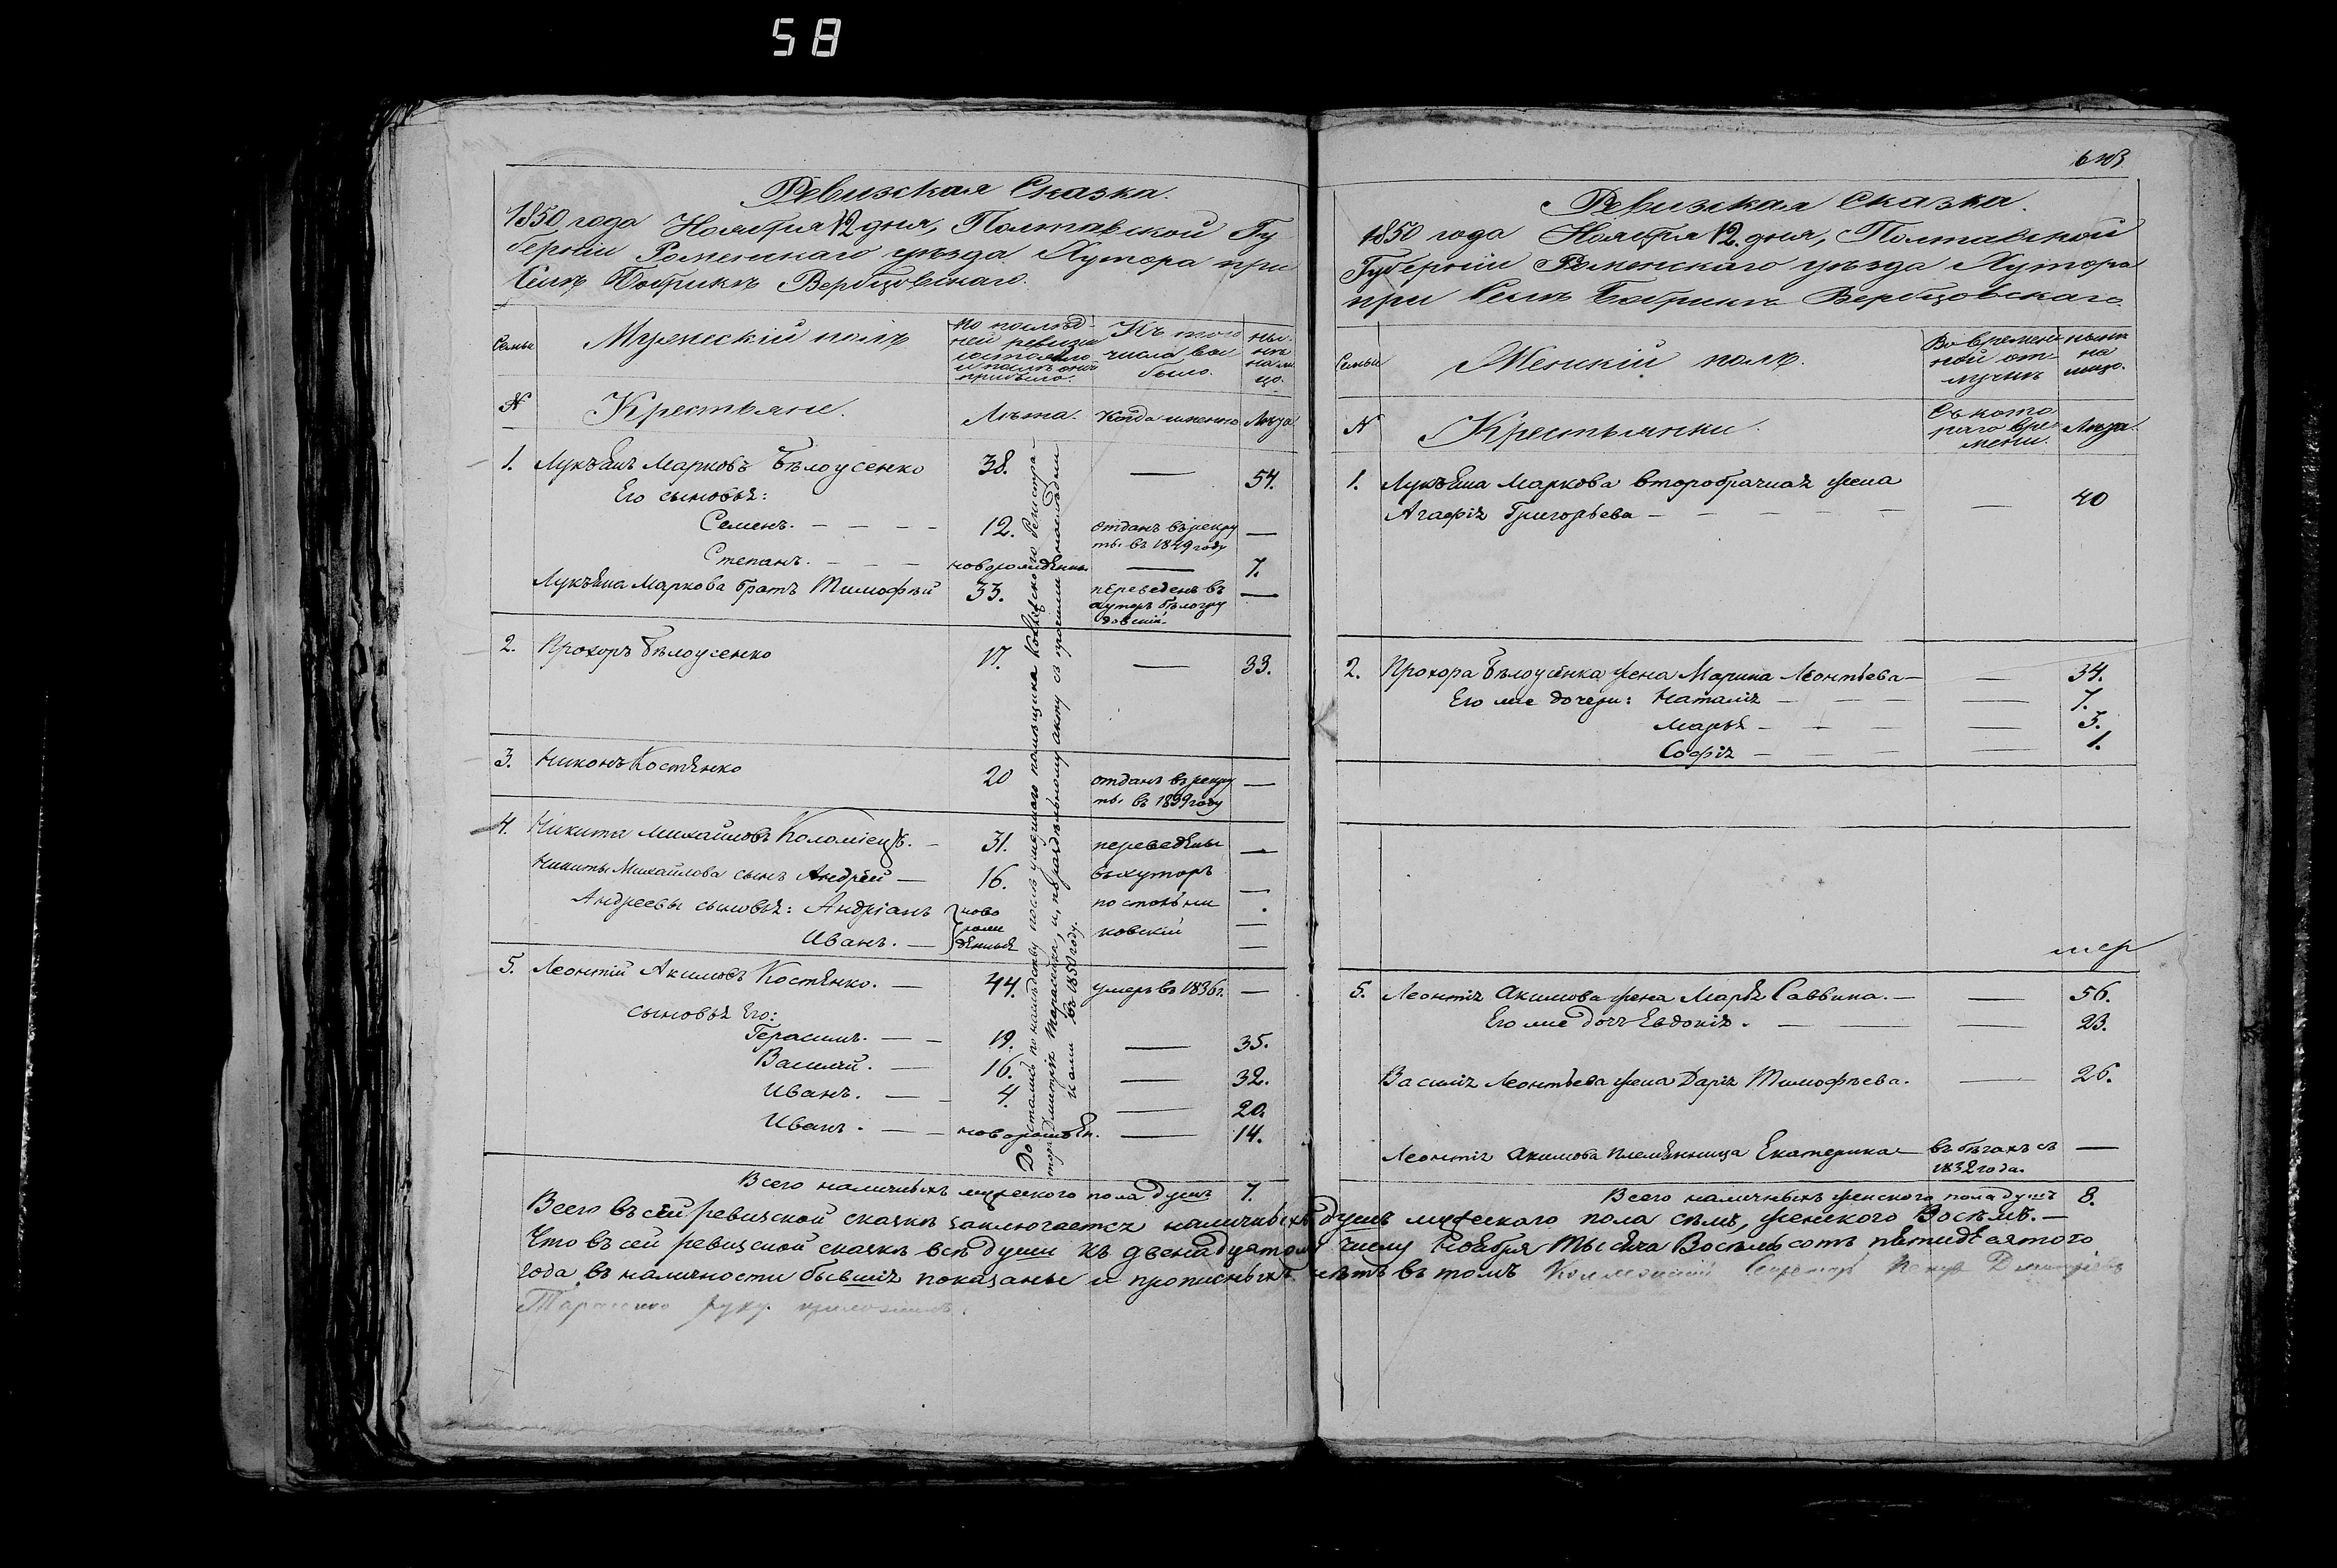 58
Ревизская Сказка.
1850 года Ноября 12 дня, Полтавской Гу
берніи Роменскаго уѣзда Хутора при
Селѣ Бобрикѣ Вербцовскаго.
Семьи
Мужескій полъ
По послѣд-
ней ревизіи
состояло
и послѣ оной
прибыло.
Изъ того
числа вы
было.
ны-
нѣ
на ли
цо.
N
Крестьяне.
Лѣта.
Когда именно
Лѣта
1. Лукъянъ Марковъ Бѣлоусенко 38. — 54.
Его сыновья:
Семенъ. — — — — 12. отданъ въ рекру
ты въ 1849 году —
Степанъ. — — — новорожденны — 7.
Лукъяна Маркова братъ Тимофѣй 33. переведенъ въ
хуторъ бѣлогру
довскій. —
2. Прохоръ Бѣлоусенко 17. — 33.
3. Никонъ Костенко 20 отданъ въ рекру
ты въ 1839 году —
4. Никита Михайловъ Коломіецъ. — 31. переведены —
Никиты Михайлова сынъ Андрей — 16. въ хуторъ —
Андреевы сыновья: Андріанъ ново —
Иванъ. — рож
денные —
ковскій
5. Леонтій Акимовъ Костенко. — 44. умеръ въ 1836г. —
сыновья Его:
Герасимъ. — — 19. — 35.
Василій. — 16. — 32.
Иванъ. — — 4 — 20.
Иванъ. — — новорожден. — 14.
Достались по наслѣдству послѣ умершаго помѣщика Регистра-
тора Дмитрія Тарасенка, и, по раздѣльному акту съ прочими наслѣдни
ками въ 1850 году.
Всего наличныхъ мужескаго пола душъ 7.
Ревизская Сказка.
1850 года Ноября 12. дня, Полтавской
Губерніи Роменскаго уѣзда Хутора
при Селѣ Бобрикѣ Вербцовскаго
Семьи
Женскій полъ.
Во времен
ной от-
лучкѣ
нынѣ
на
лицо.
N
Крестьянки.
Съ кото
раго вре-
мени.
Лѣта.
1. Лукъяна Маркова второбрачная жена
Агафія Григорьева — — — — — — — 40
2. Прохора Бѣлоусенка жена Марина Леонтьева — — 34.
Его же дочери: Наталія — — — — 7.
Марья — — — — 3.
Софія — — — — 1.
5. Леонтія Акимова жена Марья Саввина. — — 56.
Его же дочь Евдокія. — — — 23.
Василія Леонтьева жена Дарія Тимофѣева. — 26.
Леонтія Акимова племянница Екатерина — въ бѣгахъ съ
1832 года. —
Всего наличныхъ женскаго пола душъ 8.
Всего въ сей ревизской сказкѣ заключается наличныхъ душъ мужескаго пола семь, женскаго Восемь. —
Что въ сей ревизской сказкѣ всѣ души къ двенадцятому числу Ноября тысяча Восемь сотъ пятидесятого
года въ наличности бывшія показаны и прописныхъ нѣтъ въ томъ
руку приложилъ.